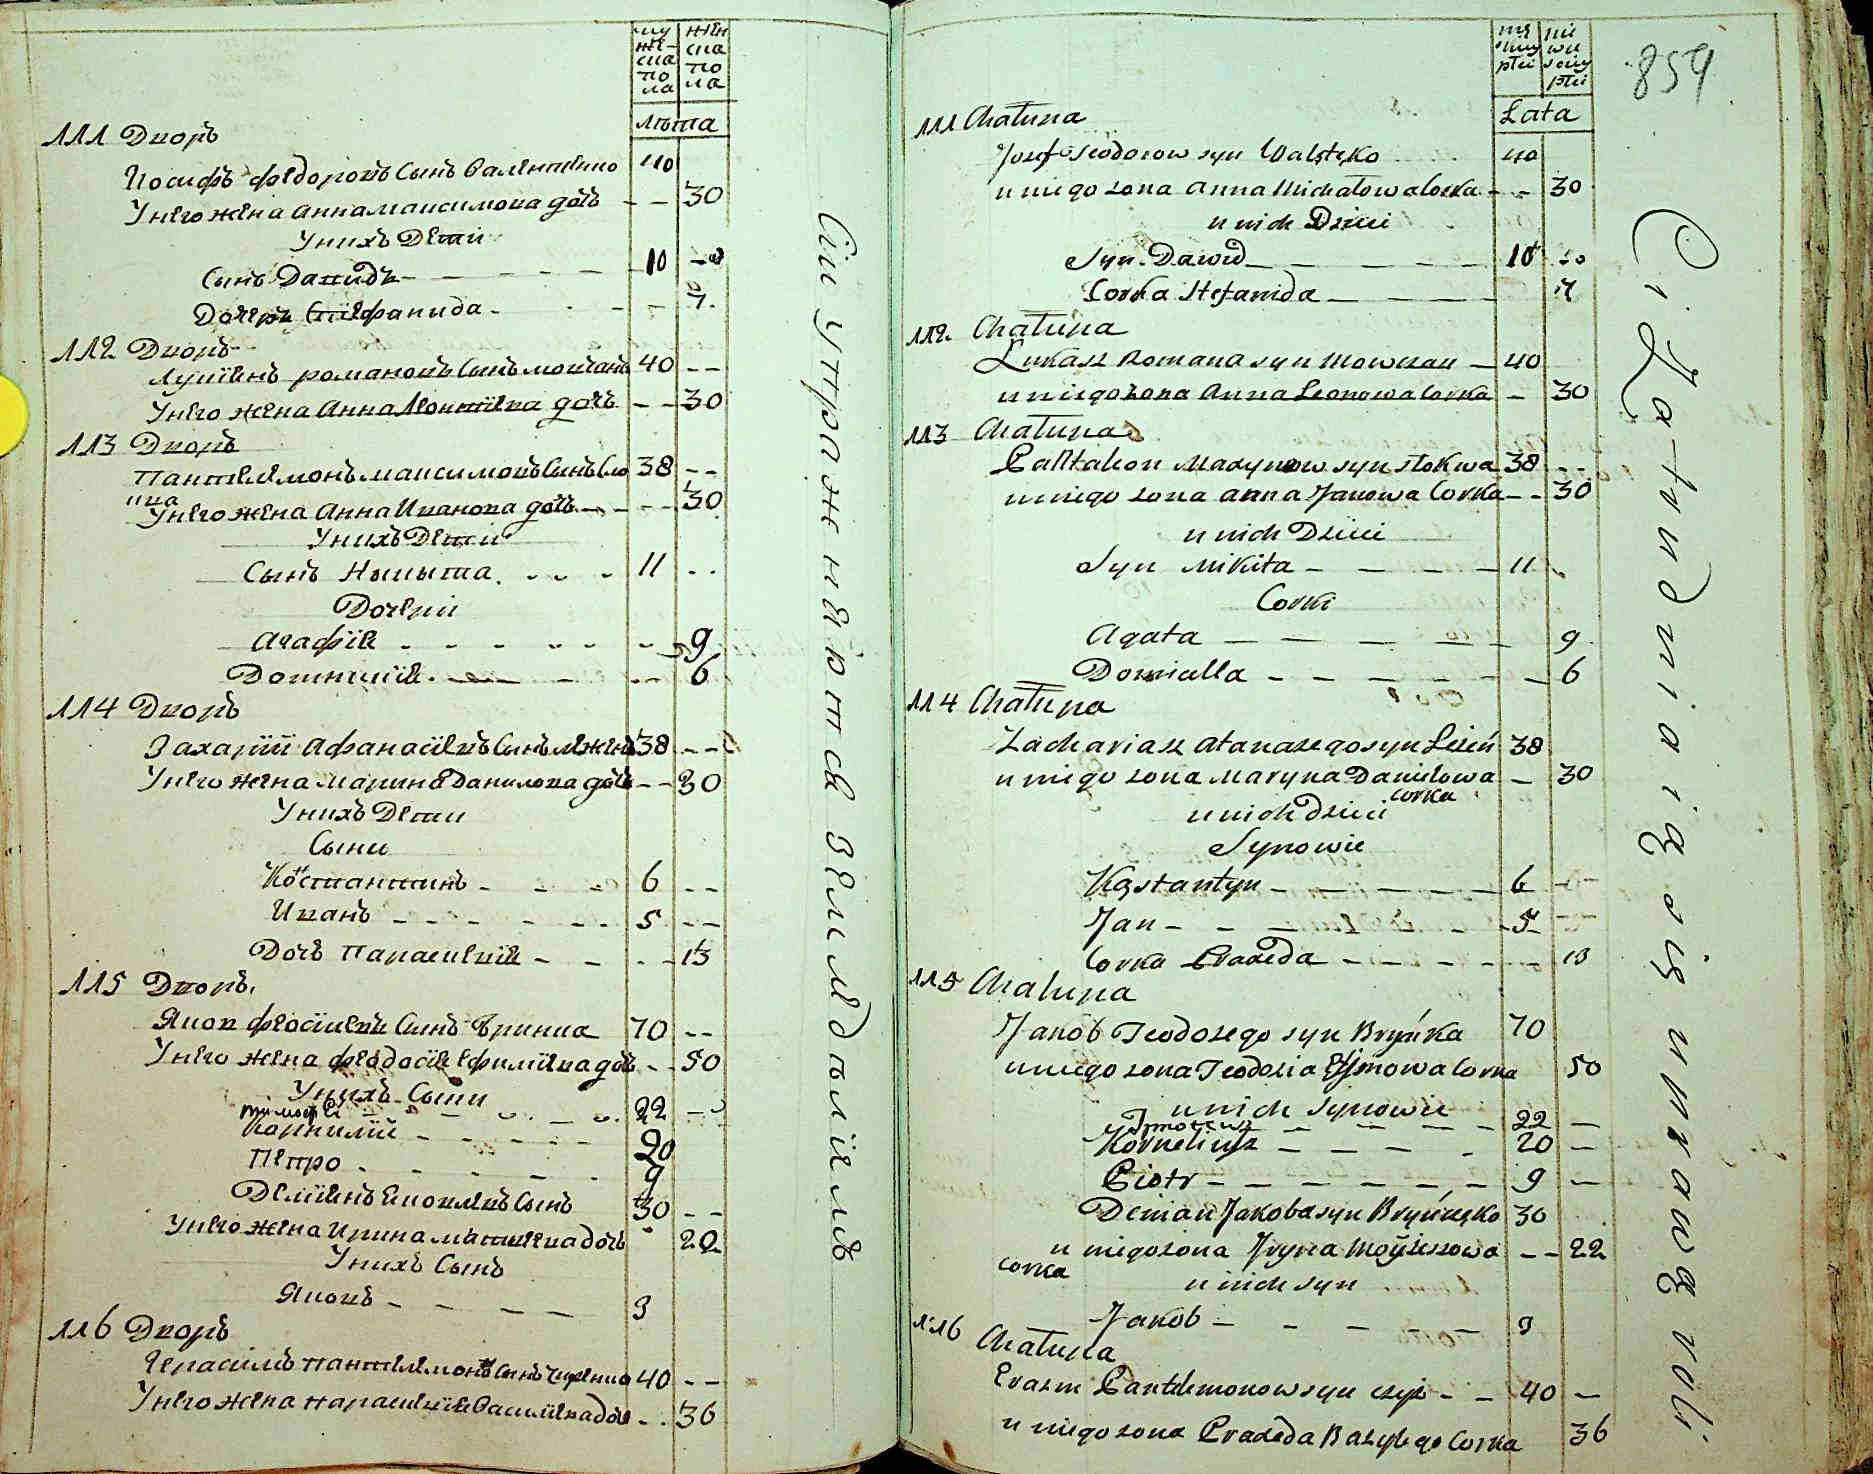 му
же-
ска
по
ла
жен
ска
по
ла
лѣта
111 Дворъ
Иосифъ Федоровъ Сынъ Валентейко 40
У него жена Анна Максимова дочь - - 30
У нихъ Дети
Сынъ Давидъ - - - - - 10 - -
Дочерь Стефанида - - - 7
112 Дворъ
Лукіянъ романовъ Сынъ мовчанъ 40 - -
У него жена Анна Леонтіева дочь - - 30
113 Дворъ
Пантелемонъ максимовъ Сынъ 38 - -
У него жена Анна Иванова дочь - - - - 30
У нихъ Дети
Сынъ Никита - - - - 11 - -
Дочери
Агафія - - - - - - - 9
Домникія - - - - - 6
114 Дворъ
Захарий Афанасіевъ Сынъ 38 - -
У него жена марина Данилова дочь - - 30
У нихъ Дети
Сыни
Константинъ - - - 6 - -
Иванъ - - - - - - 5 - -
Дочь Параскевія - - - - 13
115 Дворъ
Яков Феосіевъ Сынъ Бринка 70 - -
У него жена Феодосія Ефиміева дочь - - 50
У нихъ Сыни
тимофеі - - - - - - 22 - -
Корнилій - - - - - 20
Петро - - - - - 9
Деміянъ Ековлевъ Сынъ 30 - -
У него жена Ирина дочь 22
У нихъ Сынъ
Яковъ - - - - 3
116 Дворъ
Ерасимъ Пантелемоновъ Сынъ 40 - -
У него жена параскевія Василіева дочь - - 36
Сіи упражнеются земледѣліемъ
mę
skiey
płci
nie
wie
sciey
płci
Lata
859
111 Chałupa
Jozef Teodorow syn Walęteko 40
u niego zona Anna Michałowa Corka - - 30
u nich Dzieci
Syn Dawid - - - - - 10 - -
Corka Stefanida - - - - 7
112 Chałupa
Łukasz Romana syn Mowczan - 40
u niego zona Anna Leonowa Corka - 30
113 Chałupa
Pantalion Maxymow syn Stokwa 38 - -
u niego zona Anna Janowa Corka - - 30
u nich Dzieci
Syn Mikita - - - - - 11 -
Corki
Agata - - - - - - 9
Domicella - - - - - - 6
114 Chałupa
Zachariasz Atanazego syn Lezeń 38
u niego zona Maryna Danielowa - 30
corka
u nich dzieci
Synowie
Kąstantyn - - - - - 6 - -
Jan - - - - - - 5 - -
Corka Praxeda - - - - - - 13
115 Chałupa
Jakob Teodozego syn Bryńka 70
u niego zona Teodozia Efimowa Corka 50
u nich synowie
Tymoteusz - - - - 22 -
Korneliusz - - - - 20 -
Piotr - - - - - - 9 -
Demian Jakoba syn Bryńuęko 30
u niego zona Iryna Moyżeszowa - - 22
corka
u nich syn
Jakob - - - - - 3
116 Chałupa
Erazm Pantelemonow syn czyż - - 40 -
u niego zona Praxeda Bazylego Corka 36
Ci Zatrudniaią się uprawą roli